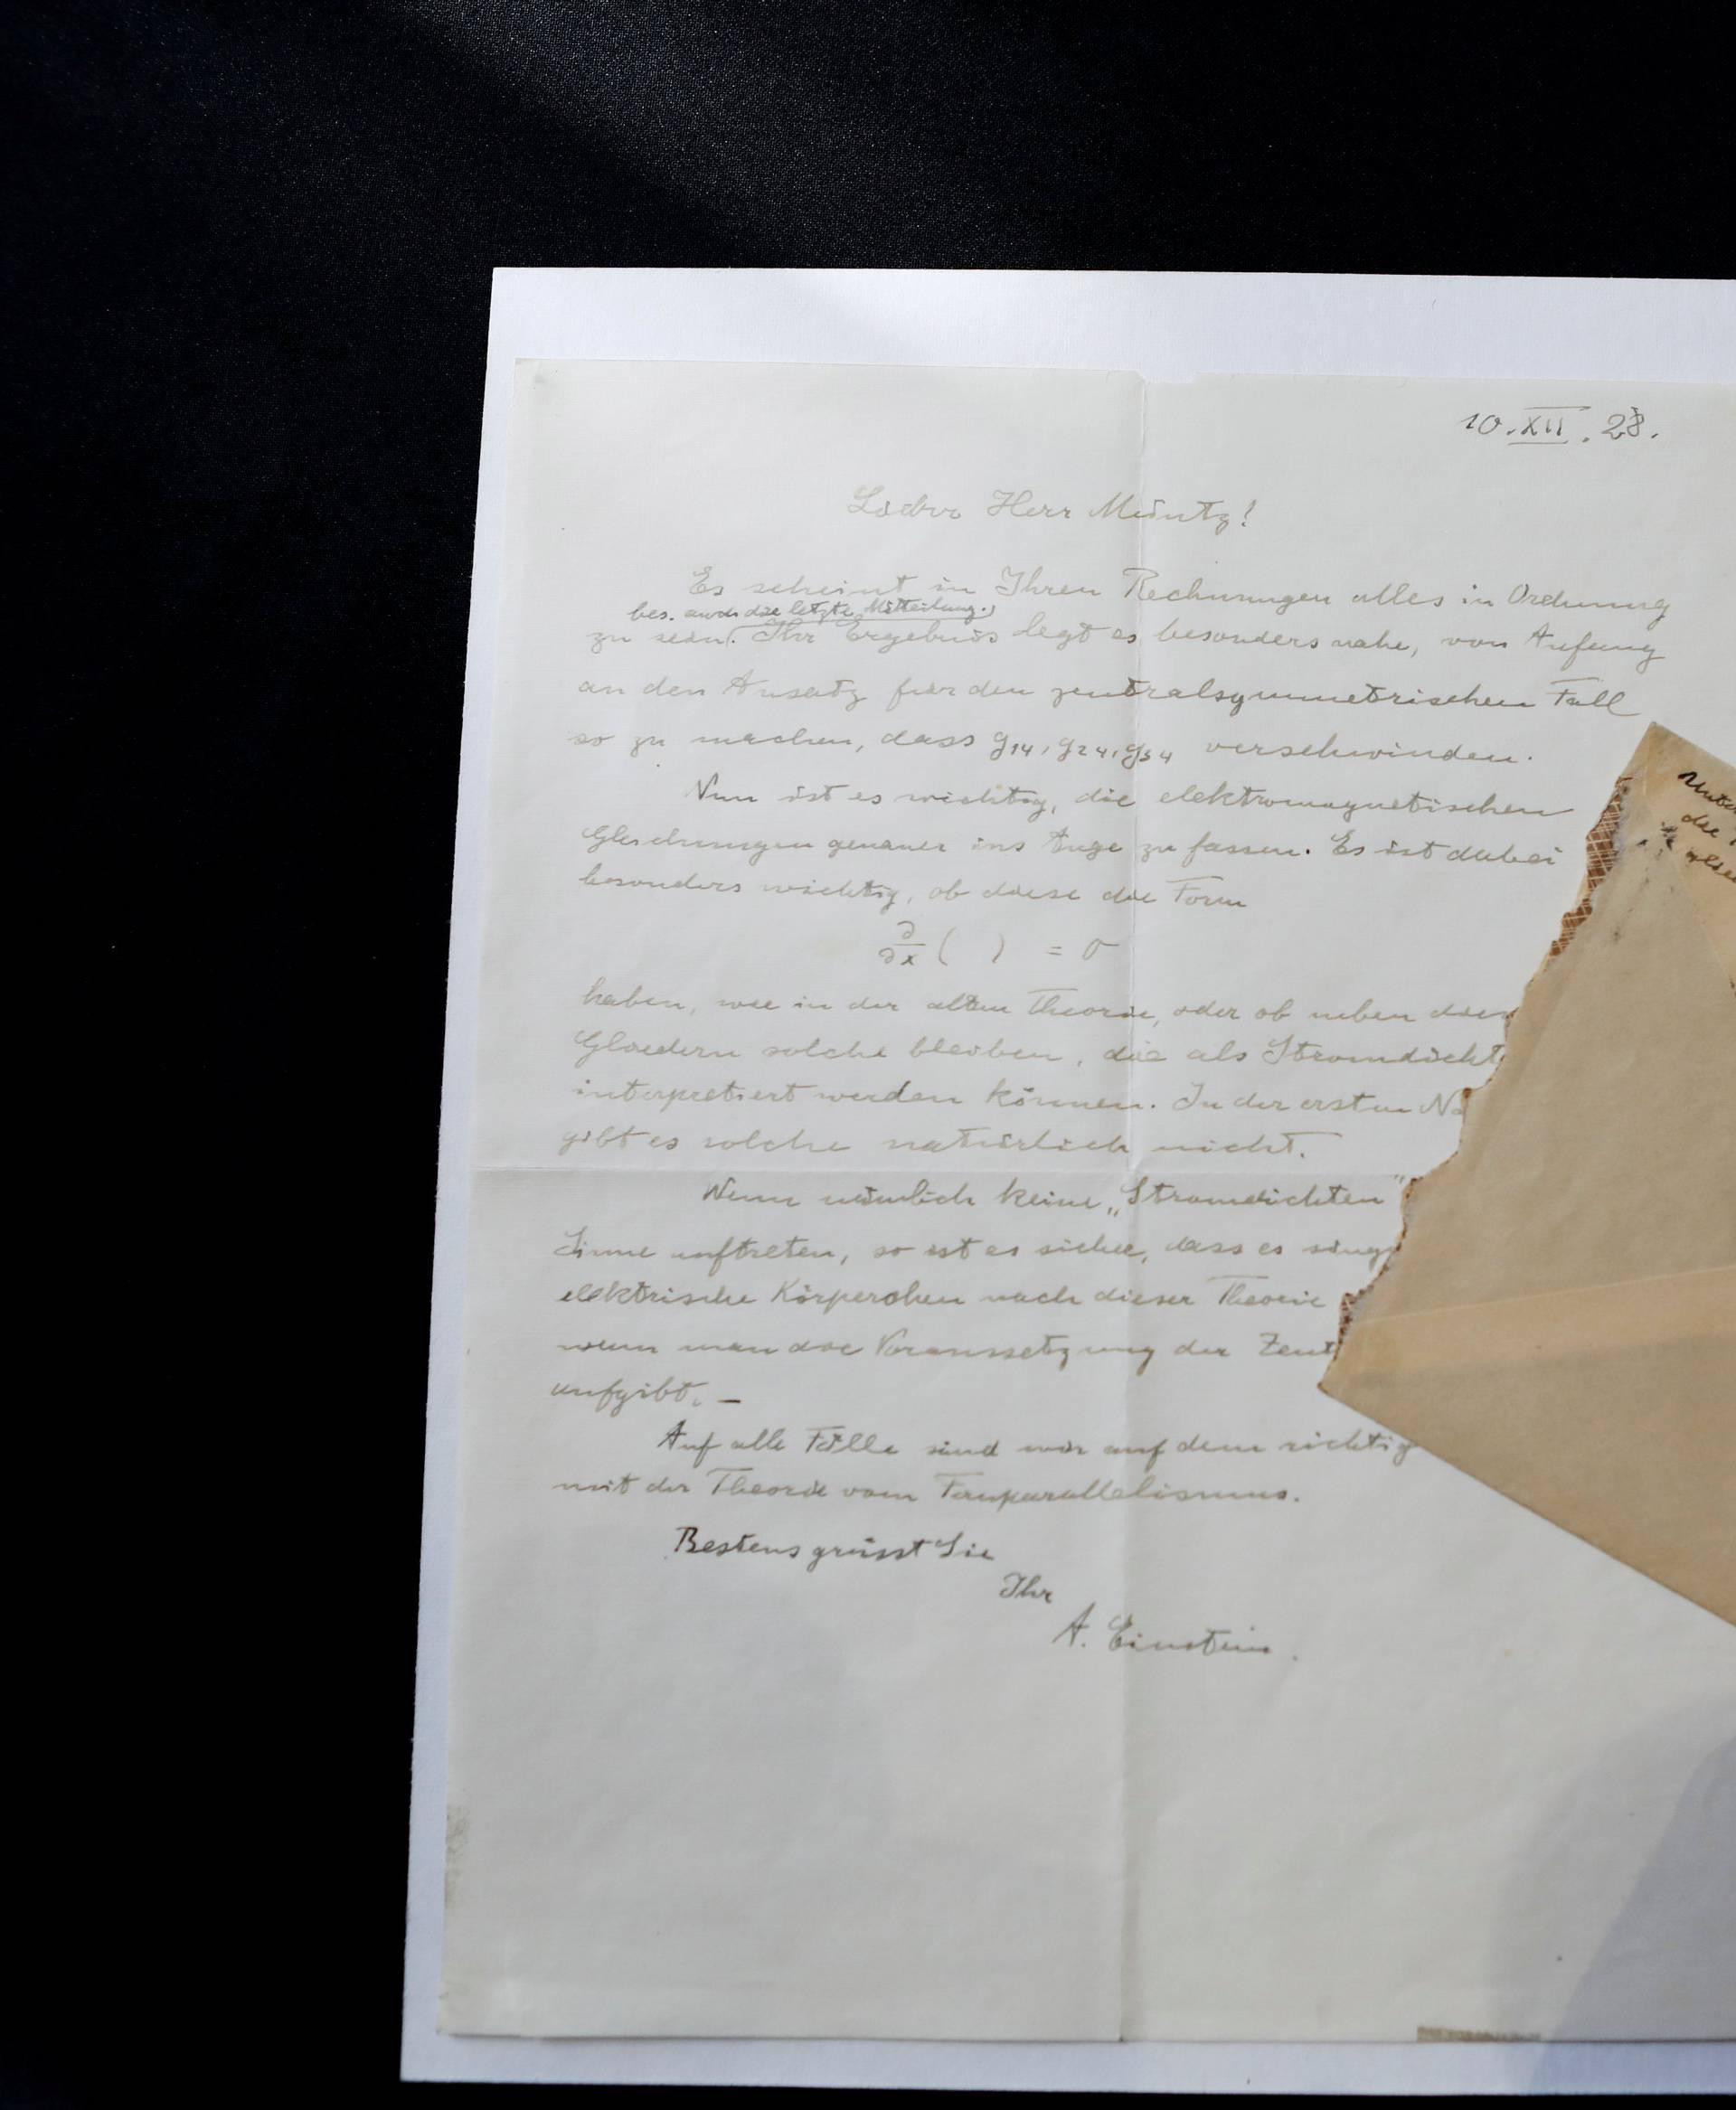 10.XII.28.
Lieber Herr Müntz!
Es scheint in Ihren Rechnungen alles in Ordnung
bes. auch die letzte Mitteilung.
zu sein. Ihr Ergebnis legt es besonders nahe, von Anfang
an den Ansatz für den zentralsymmetrischen Fall
so zu machen, dass g14, g24, g34 verschwinden.
Nun ist es wichtig, die elektromagnetischen
Gleichungen genauer ins Auge zu fassen. Es ist dabei
besonders wichtig, ob diese die Form
∂/∂x ( ) = 0
haben, wie in der alten Theorie, oder ob neben dies
Gliedern solche bleiben, die als Stromdicht
interpretiert werden können. In der ersten Nä
gibt es solche natürlich nicht.
Wenn nämlich keine „Stromdichten"
Sinne auftreten, so ist es sicher, dass es singu
elektrische Körperchen nach dieser Theorie
wenn man die Voraussetzung der Zent
aufgibt. –
Auf alle Fälle sind wir auf dem richtig
mit der Theorie vom Fernparallelismus.
Bestens grüsst Sie
Ihr
A. Einstein.
die